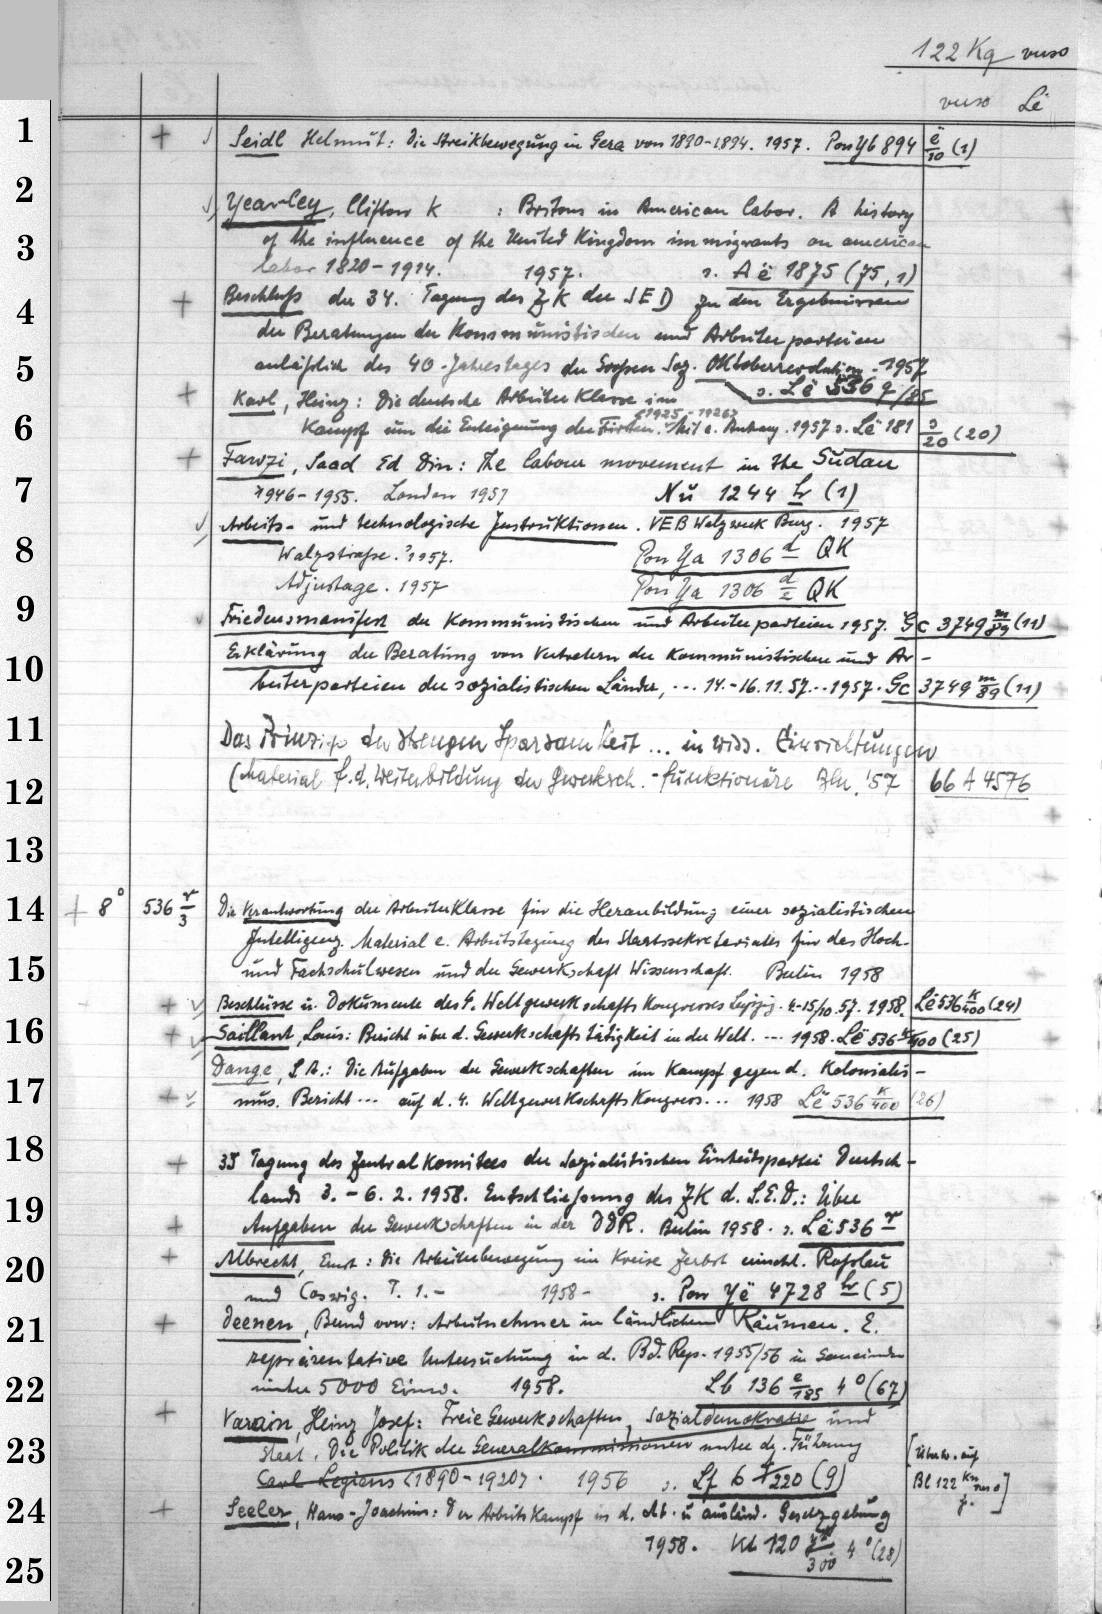 122 Kq verso
verso Lë
1 + Seidl Helmut: Die Streikbewegung in Gera von 1890-1894. 1957. Pon Yb 894 ë/10 (1)
2 Yearley, Clifton K : Britons in American labor. A history
3 of the influence of the United Kingdom immigrants on american
labor 1820-1914. 1957. s. Aë 1875 (75,1)
4 + Beschluß der 34. Tagung des ZK der SED zu den Ergebnissen
der Beratungen der Kommunistischen und Arbeiterparteien
5 anläßlich des 40. Jahrestages der Großen Soz. Oktoberrevolution. 1957
s. Lë 536 q/85
+ Karl, Heinz: Die deutsche Arbeiterklasse im
<1925-1926>
6 Kampf um die Enteignung der Fürsten. Mit e. Anhang. 1957 s. Lë 181 s/20 (20)
+ Fawzi, Saad Ed Din: The labour movement in the Sudan
7 1946-1955. London 1957 Nu 1244 hr (1)
Arbeits- und technologische Instruktionen. VEB Walzwerk Burg. 1957
8 Walzstraße. 1957. Pon Ya 1306 d QK
Adjustage. 1957 Pon Ya 1306 d/c QK
9 Friedensmanifest der Kommunistischen und Arbeiterparteien 1957. Gc 3749 m/89 (11)
10 Erklärung der Beratung von Vertretern der Kommunistischen und Ar-
beiterparteien der sozialistischen Länder, ... 14.-16.11.57... 1957. Gc 3749 m/89 (11)
11 Das Prinzip der strengen Sparsamkeit ... in wiss. Einrichtungen
12 (Material f. d. Weiterbildung der Gewerksch.-funktionäre Bln. '57 66 A 4576
13
14 + 8° 536 r/3 Die Verantwortung der Arbeiterklasse für die Heranbildung einer sozialistischen
Intelligenz. Material e. Arbeitstagung des Staatssekretariates für das Hoch-
15 und Fachschulwesen und der Gewerkschaft Wissenschaft. Berlin 1958
+ Beschlüsse u. Dokumente des 4. Weltgewerkschaftskongresses Leipzig. 4-15/10.57. 1958. Lë 536 K/400 (24)
16 + Saillant, Louis: Bericht über d. Gewerkschaftstätigkeit in der Welt. --- 1958. Lë 536 K/400 (25)
Dange, S.A.: Die Aufgaben der Gewerkschaften im Kampf gegen d. Kolonialis-
17 + mus. Bericht ... auf d. 4. Weltgewerkschaftskongress... 1958 Lë 536 K/400 (26)
18 + 35 Tagung des Zentralkomitees der Sozialistischen Einheitspartei Deutsch-
19 lands 3.-6.2.1958. Entschließung des ZK d. S.E.D.: Über
+ Aufgaben der Gewerkschaften in der DDR. Berlin 1958. s. Lë 536 r
20 + Albrecht, Ernst: Die Arbeiterbewegung im Kreise Zerbst einschl. Roßlau
und Coswig. T. 1.- 1958- s. Pon Yë 4728 hr (5)
21 + Deenen, Bernd von: Arbeitnehmer in ländlichen Räumen. E.
repräsentative Untersuchung in d. Bd. Rep. 1955/56 in Gemeinden
22 unter 5000 Einw. 1958. Lb 136 e/185 4° (67)
+ Varain, Heinz Josef: Freie Gewerkschaften, Sozialdemokratie und
23 Staat. Die Politik der Generalkommissionen unter d. Führung [Überw. auf
Carl Legiens <1890-1920>. 1956 s. Lf 6 220 (9) Bl 122
24 + Seeler, Hans-Joachim: Der Arbeitskampf in d. dt. u ausländ. Gesetzgebung
1958. Kt 120 /300 4° (28)
25